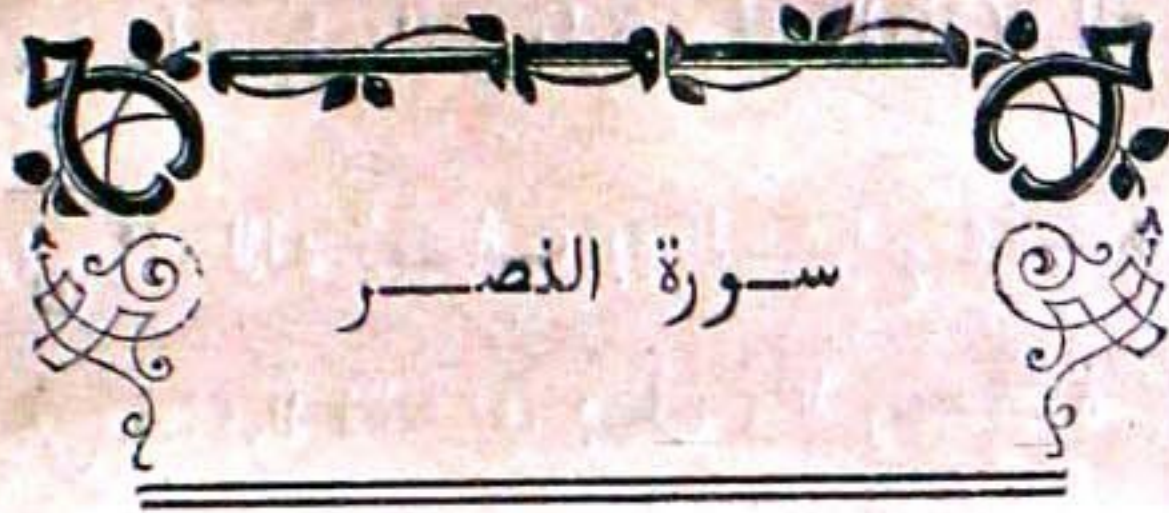 سورة النصر